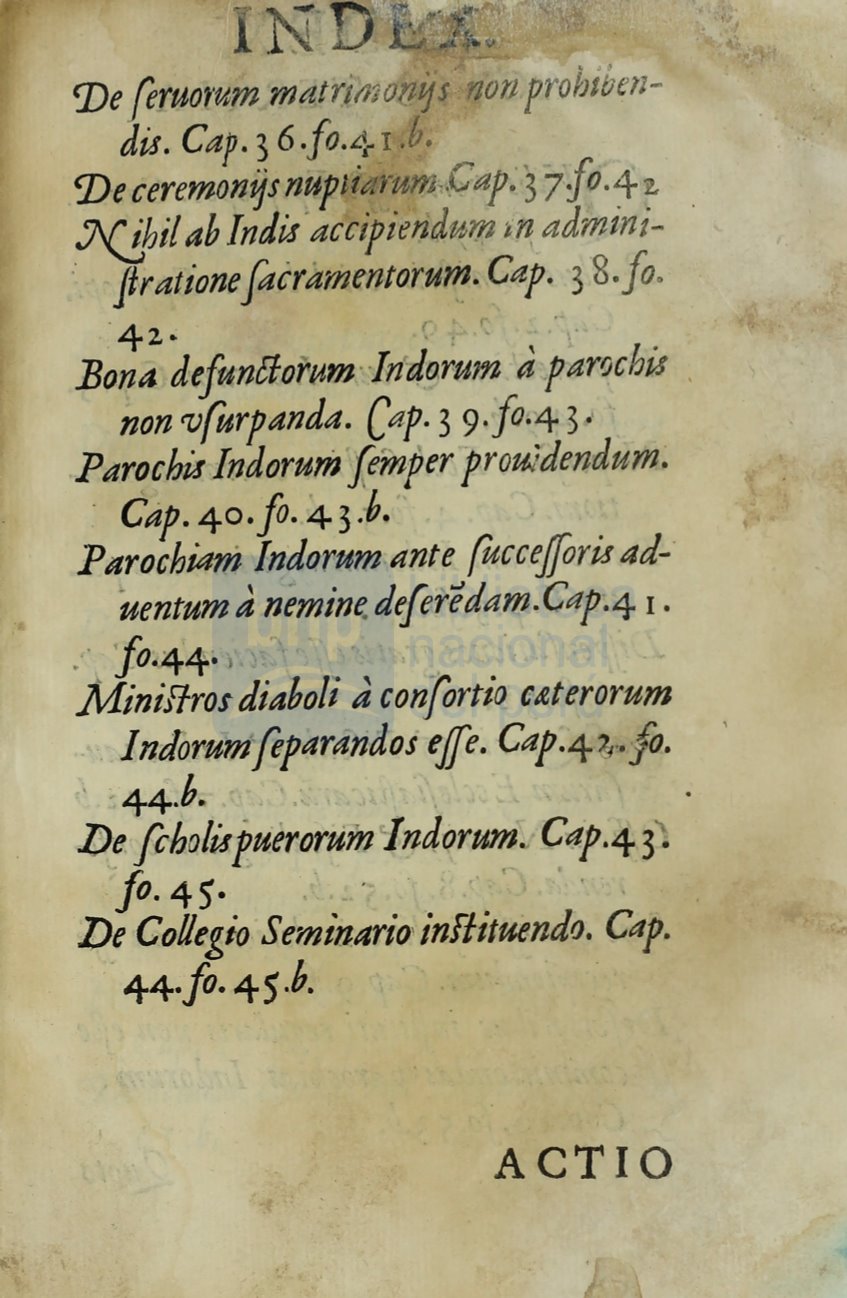 INDEX.
De ſeruorum matrimonijs non prohiben-
dis. Cap. 36. fo. 41. b.
De ceremonijs nuptiarum Cap. 37. fo. 42
Nihil ab Indis accipiendum in admini-
ſtratione ſacramentorum. Cap. 38. fo.
42.
Bona defunctorum Indorum à parochis
non vſurpanda. Cap. 39. fo. 43.
Parochis Indorum ſemper prouidendum.
Cap. 40. fo. 43. b.
Parochiam Indorum ante ſucceſſoris ad-
uentum à nemine deſerēdam. Cap. 41.
fo. 44.
Miniſtros diaboli à conſortio cæterorum
Indorum ſeparandos eſſe. Cap. 42. fo.
44. b.
De ſcholis puerorum Indorum. Cap. 43.
fo. 45.
De Collegio Seminario inſtituendo. Cap.
44. fo. 45. b.
ACTIO